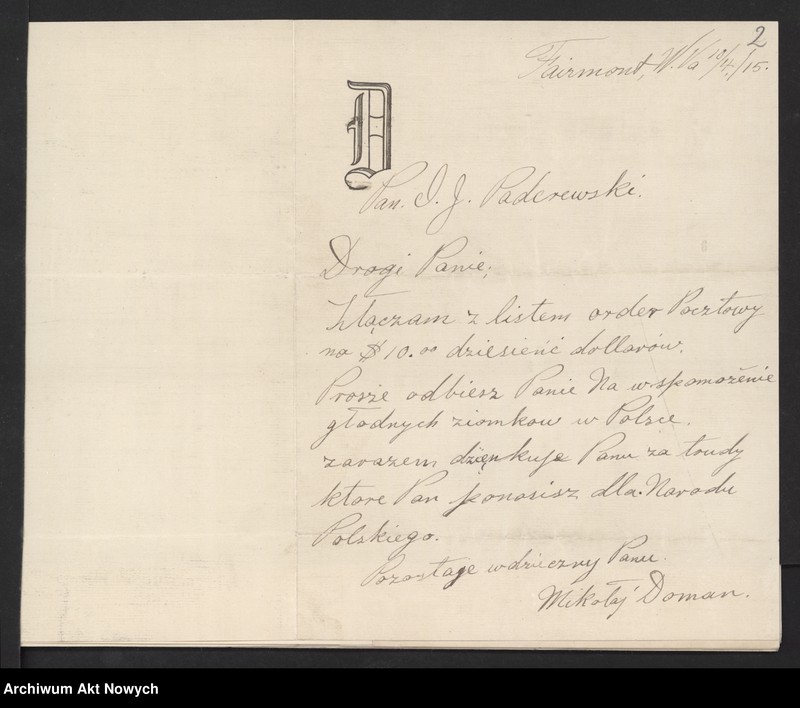 2
Fairmont, W. Va 10/4/15.
D
Pan. I. J. Paderewski.
Drogi Panie;
Włączam z listem order Pocztowy
na $10.00 dziesieńć dollarów.
Prosże odbiesz Panie Na w-spomożenie
głodnych ziomkow w Polsce.
zarazem dzięnkuje Panu za trudy
ktore Pan ponosisz dla Narodu
Polskiego.
Pozostaje wdzieczny Panu.
Mikołaj Doman.
Archiwum Akt Nowych